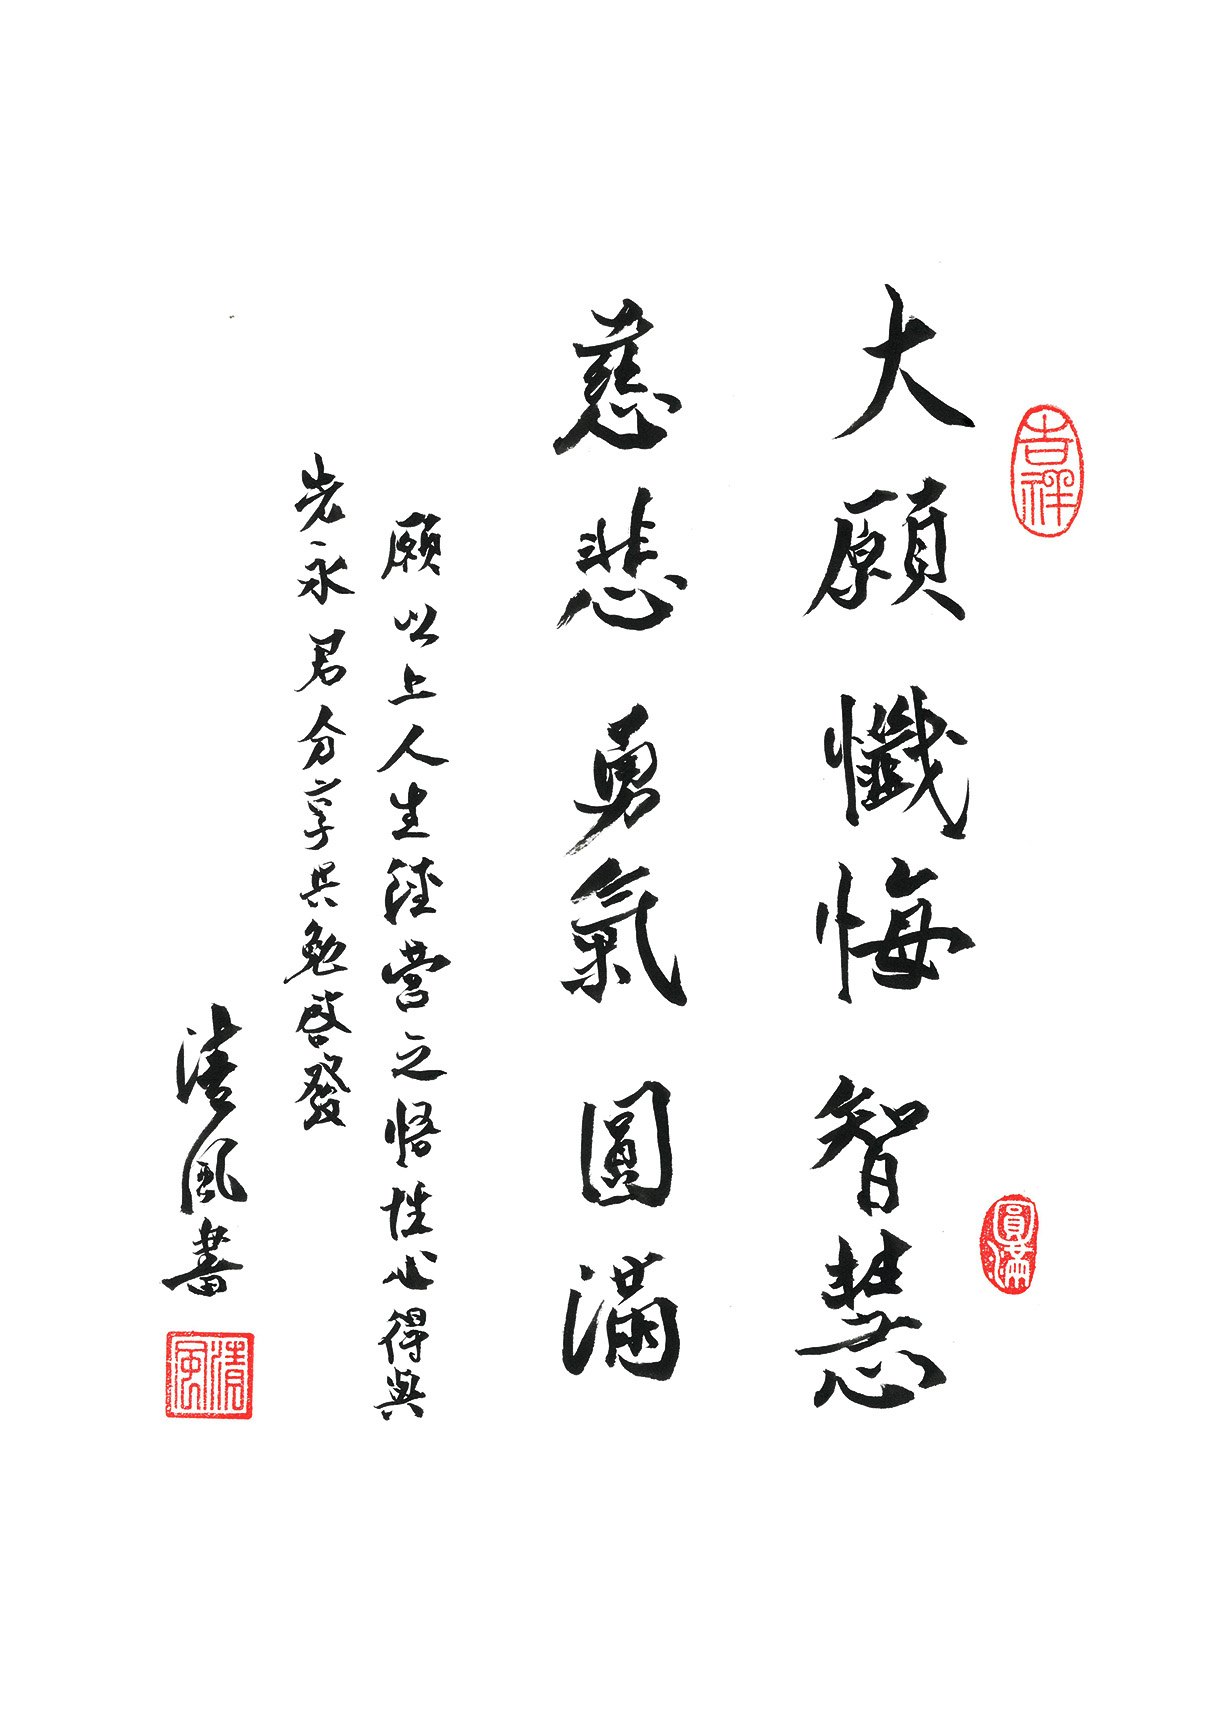 大願懺悔智慧
慈悲勇氣圓滿
願以上人生經營之悟性心得與
先永君分享共勉啓發
清風書
吉祥
圓滿
清風